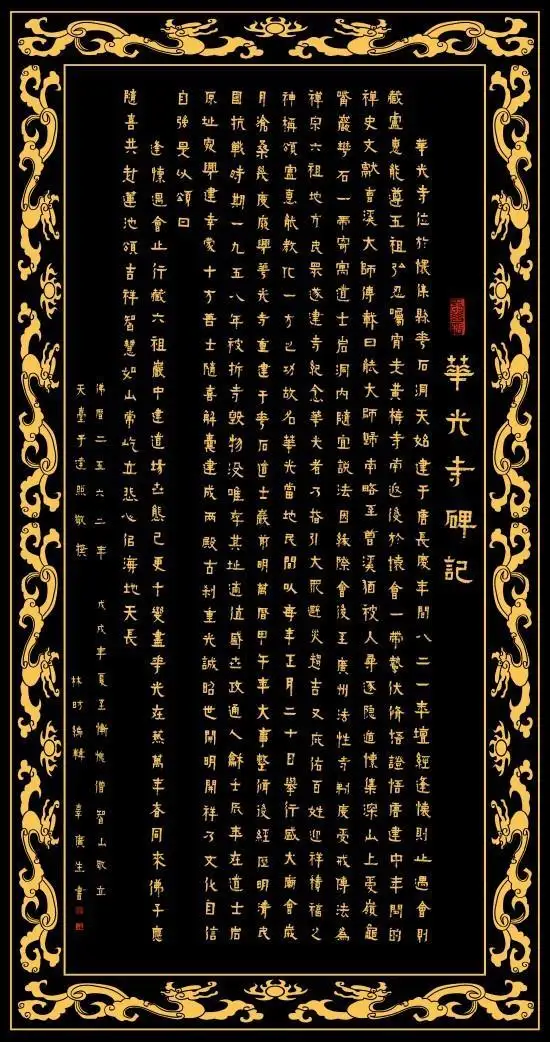 華光寺碑記
華光寺位於懷集縣花石洞天始建于唐長慶年間八二一年壇經逢懷則止遇會則
藏盧惠能遵五祖弘忍囑走黃梅寺南返後於懷會一帶蟄伏脩悟證悟唐建中年間的
禪史文獻喜溪大師傳載曰能大師歸南略至曹溪猶被人尋逐隱遁懷集深山上愛嶺龜
嘴巖花石一帶寄寓道士岩洞內隨宜說法因緣際會後至廣州法性寺剃度受戒傳法為
禪宗六祖地方民眾遂建寺紀念華大者乃指引大眾避災趨吉又庇佑百姓迎祥積福之
神稱頌盧惠能教化一方之功故名華光當地民間以每年正月二十日舉行盛大廟會歲
月滄桑幾度廢興華光寺重建于花石道士巖前明萬曆甲午年大事整脩後經歷明清民
國抗戰時期一九五八年被拆寺毀物沒唯存其址適值盛世政通人龢壬辰年在道士岩
原址興建幸蒙十方善士隨喜解囊建成兩殿古剎重光誠昭世開明開祥乃文化自信
自強是以頌曰
逢懷遇會止行藏六祖巖中建道場世態已更十變盡華光在萬年春同來佛子應
隨喜共赴蓮池頌吉祥智慧如山常屹立悲心似海地天長
佛曆二五六二年 戊戌年夏至慚愧僧智山敬立
天臺于達照敬撰 林時編輯 韋廣生書